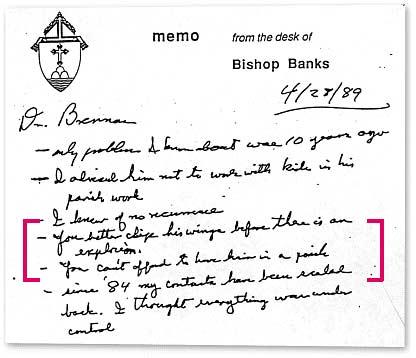 memo
from the desk of
Bishop Banks
4/28/89
Dr. Brennan
- only problem I know about was 10 years ago
- I advised him not to work with kids in his
parish work
- I knew of no recurrence
- You better clip his wings before there is an
explosion.
- You can't afford to have him in a parish
- since '84 my contacts have been scaled
back. I thought everything was under
control